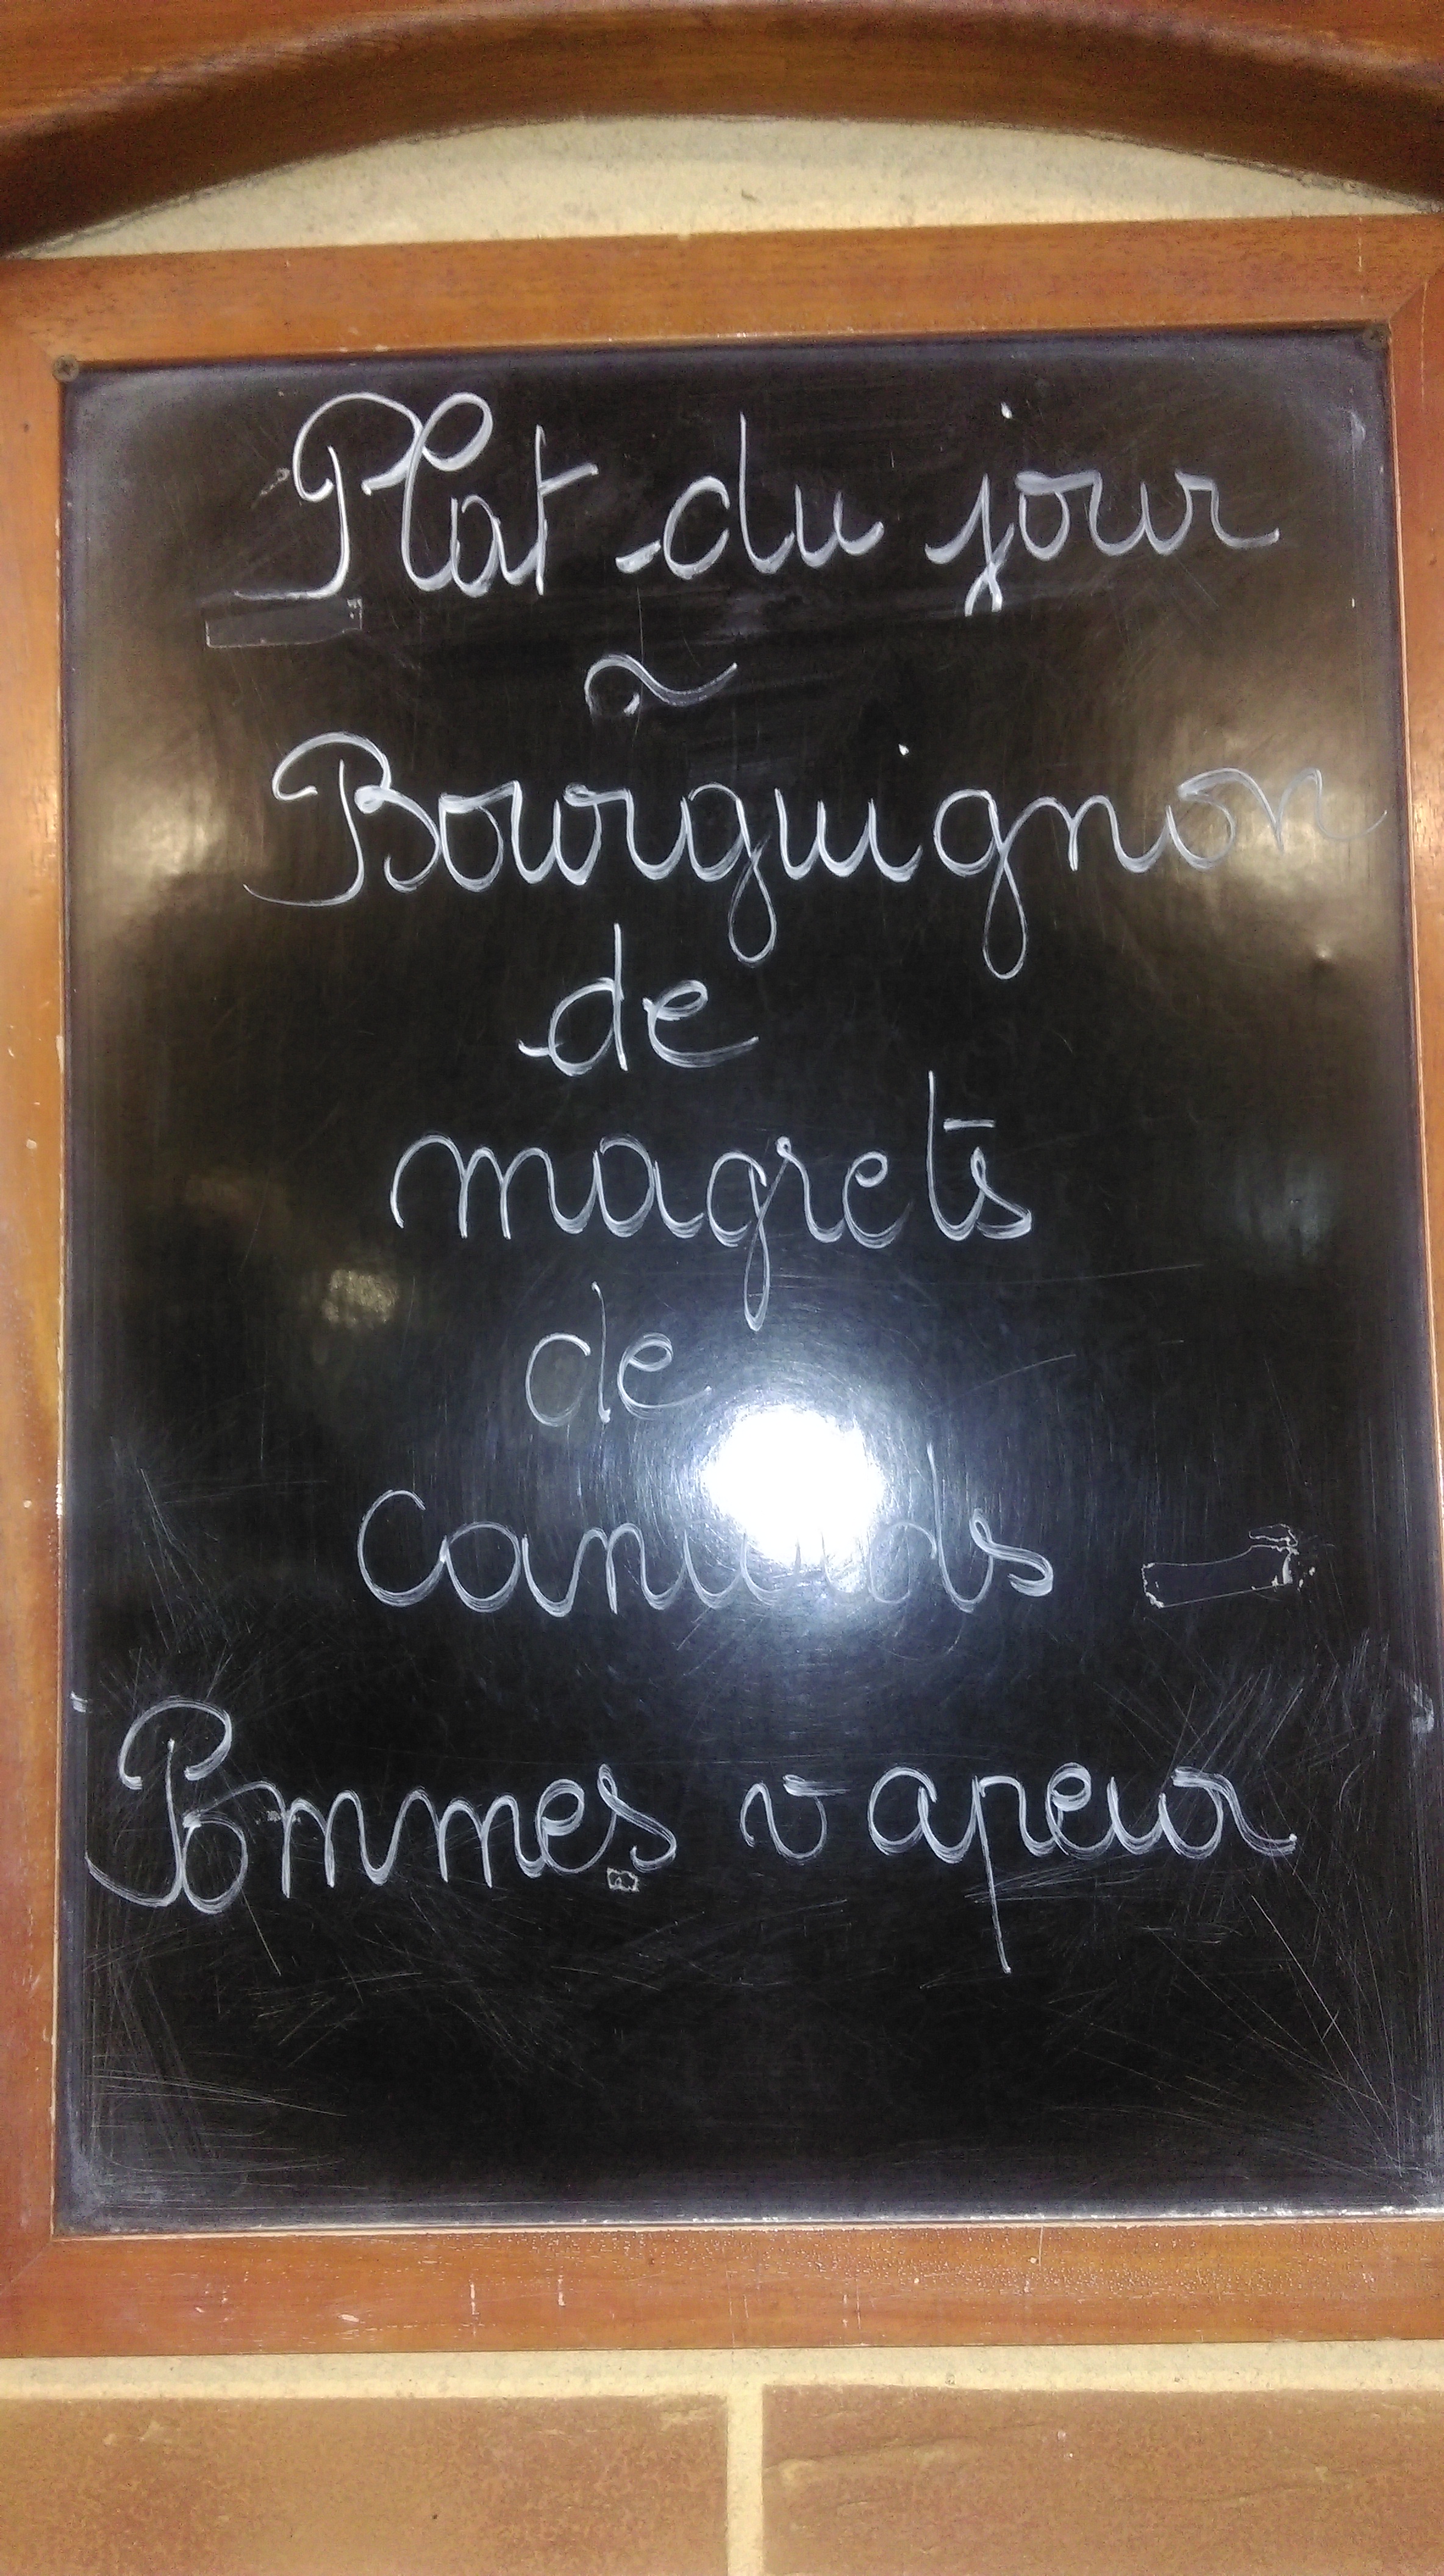 Plat du jour
~
Bourguignon
de
magrets
de
Canards
Pommes vapeur